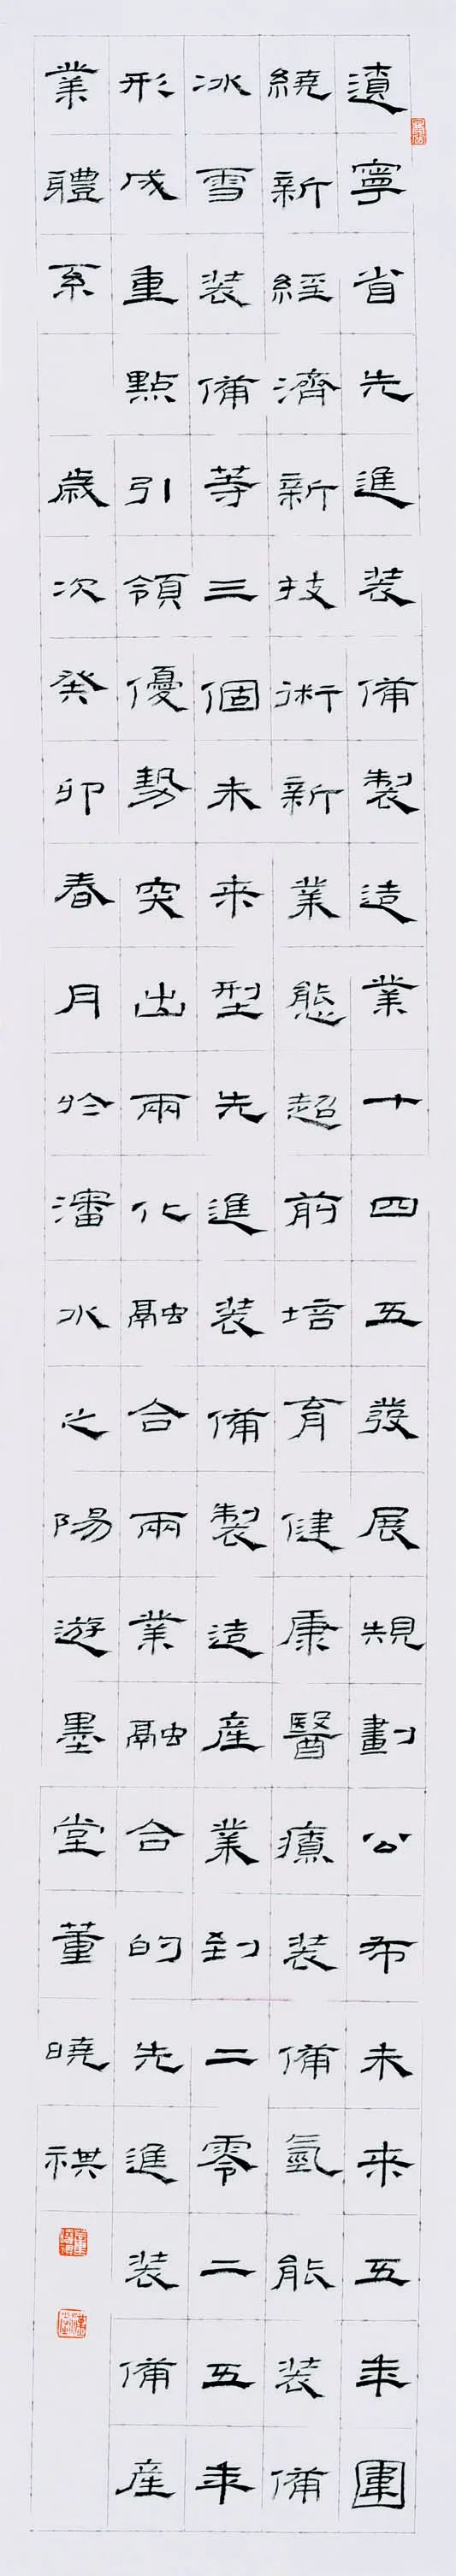 遼寧省先進装備製造業十四五發展規劃公布未来五年圍
繞新經濟新技術新業態超前培育健康醫療装備氫能装備
冰雪装備等三個未来型先進装備製造産業到二零二五年
形成重點引領優勢突出兩化融合兩業融合的先進装備産
業體系 歳次癸卯春月於瀋水之陽遊墨堂董曉祺